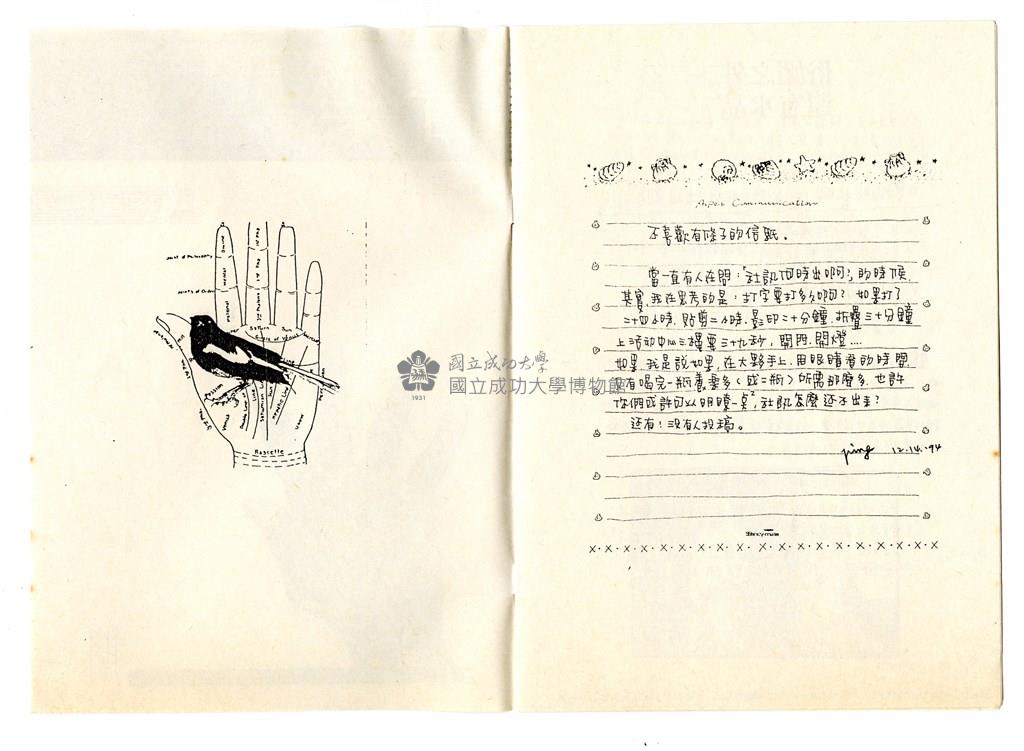 Joint of Philosophy
Joint of Order
Saturn
Sun
Rascette
國立成功大學
國立成功大學博物館
1931
Communication
不喜歡有條子的信紙。
當一直有人在問：「社訊何時出啊?」的時候
其實,我在思考的是：打字要打多久啊? 如果打了
二十四小時,貼剪二小時,影印二十分鐘,折疊三十分鐘
上活動中心三樓要三十九秒,開門,開燈....
如果,我是說如果,在大夥手上,用眼睛看的時間
有喝完一瓶養樂多(或二瓶)所需那麼多,也許
你們或許可以明瞭一点,社訊怎麼还不出來?
还有!沒有人投稿。
ping 12.14.'94
X·X·X·X·X·X·X·X·X·X·X·X·X·X·X·X·X·X